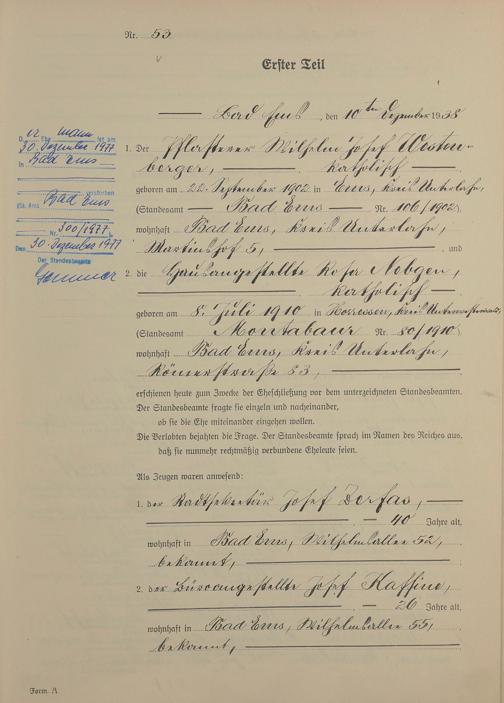 Nr. 53
Erster Teil
Bad Ems, den 10ten Dezember 1938
1. Der Pflasterer Wilhelm Josef Westen-
berger, katholisch
geboren am 22. September 1902 in Ems, Kreis Unterlahn,
(Standesamt Bad Ems Nr. 106/1902)
wohnhaft Bad Ems, Kreis Unterlahn,
Martinshof 5, und
2. die Hausangestellte Rosa Nebgen,
katholisch
geboren am 8. Juli 1910 in Horressen, Kreis Unterwesterwald,
(Standesamt Montabaur Nr. 80/1910)
wohnhaft Bad Ems, Kreis Unterlahn,
Römerstraße 53,
erschienen heute zum Zwecke der Eheschließung vor dem unterzeichneten Standesbeamten.
Der Standesbeamte fragte sie einzeln und nacheinander,
ob sie die Ehe miteinander eingehen wollen.
Die Verlobten bejahten die Frage. Der Standesbeamte sprach im Namen des Reiches aus,
daß sie nunmehr rechtmäßig verbundene Eheleute seien.
Als Zeugen waren anwesend:
1. der Stadtsekretär Josef Dorfas,
40 Jahre alt,
wohnhaft in Bad Ems, Wilhelmsallee 52,
bekannt,
2. der Büroangestellte Josef Kaffine,
26 Jahre alt,
wohnhaft in Bad Ems, Wilhelmsallee 55,
bekannt,
Form. A
Der Ehemann ist am
30. Dezember 1977
in Bad Ems
verstorben
Sta. Amt Bad Ems
Nr. 300/1977
Den 30. Dezember 1977
Der Standesbeamte